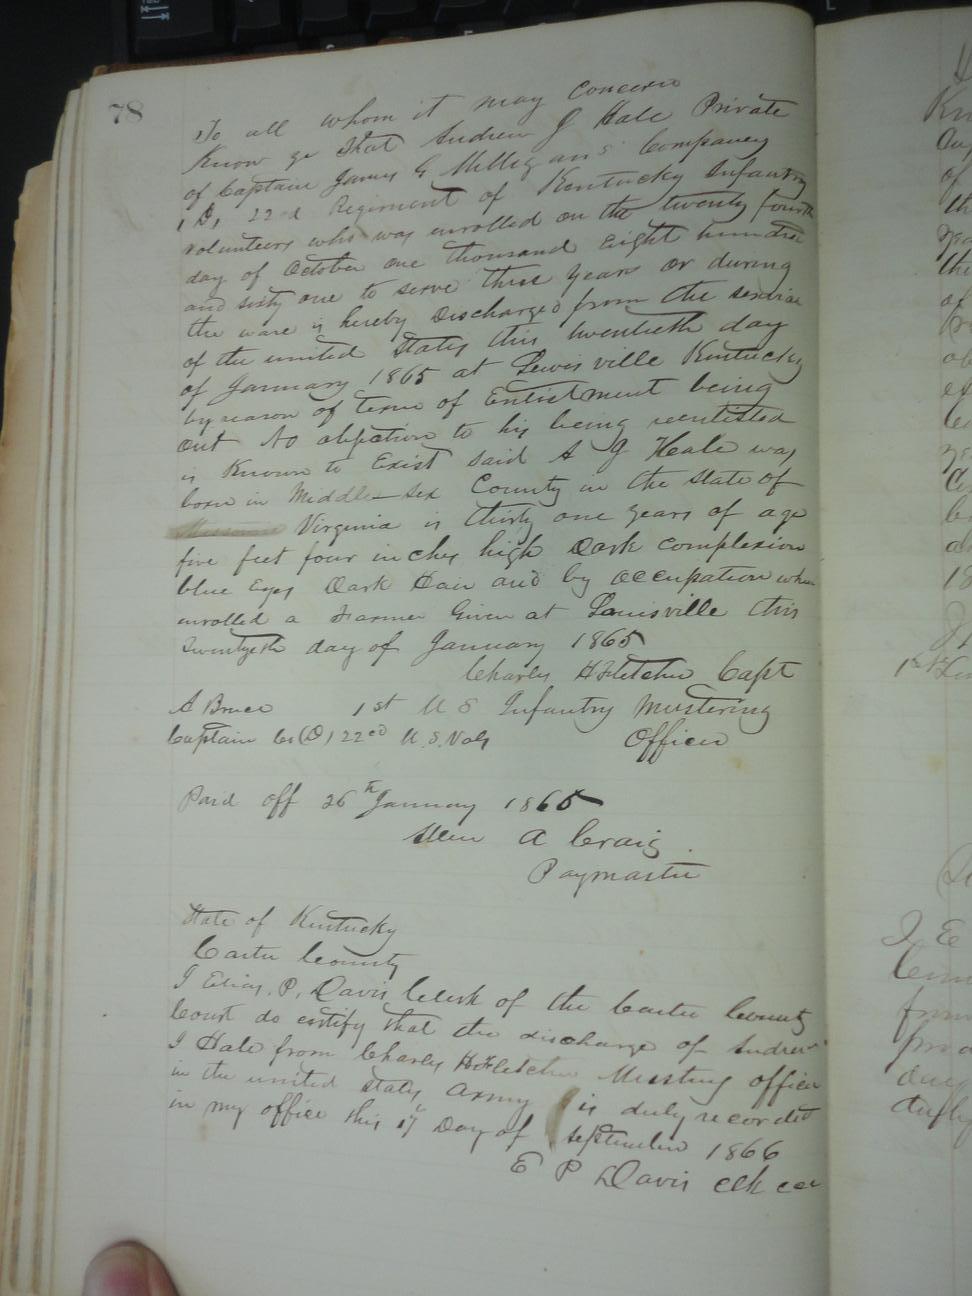 78
To all whom it may Concern
Know ye That Andrew J Hale Private
of Captain James G Milligans Company
(D) 22d Regiment of Kentucky Infantry
volunteers who was enrolled on the twenty fourth
day of October one thousand Eight hundred
and sixty one to serve three years or during
the ware is hereby Discharged from the service
of the united States this twentieth day
of January 1865 at Lewisville Kentucky
by reason of Term of Enlistment being
out No objection to his being reenlisted
is Known to Exist said A J Hale was
born in Middle-sex County in the State of
Virginia is thirty one years of age
five feet four inches high Dark complexion
blue Eyes Dark Hair and by occupation when
enrolled a Farmer Given at Louisville this
Twentyeth day of January 1865
Charles H Fletcher Capt
A Bruce 1st U S Infantry Mustering
Captain Co (D) 22nd U.S. Vols Officer
Paid off 26th January 1865
A Craig
Paymaster
State of Kentucky
Carter County
I Elias. P. Davis Clerk of the Carter County
Court do certify that the discharge of Andrew
J Hale from Charles H Fletcher Musting officer
in the united states army is duly recorded
in my office this 17 Day of september 1866
E P Davis clk